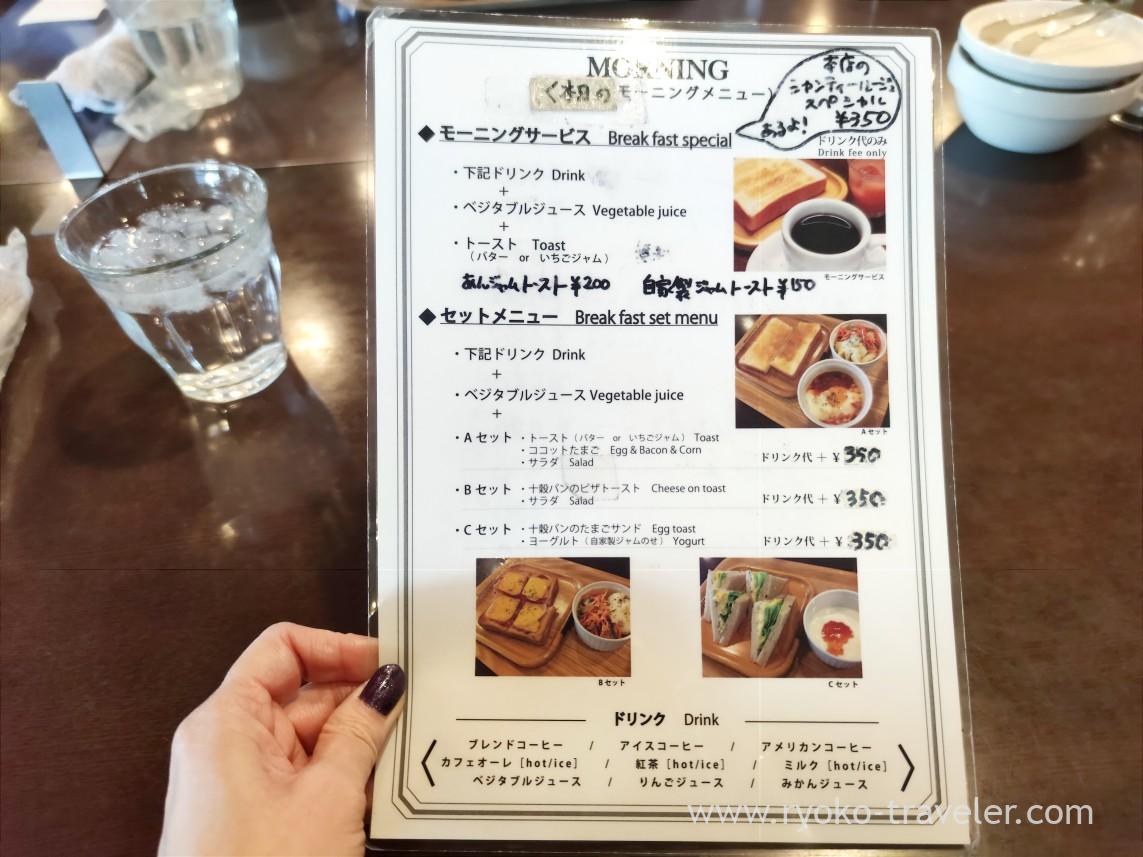 MORNING
く本日の モーニングメニュー)
本店の
シャンティールージュ
スペシャル
¥350
あるよ!
◆ モーニングサービス Break fast special
ドリンク代のみ
Drink fee only
・下記ドリンク Drink
+
・ベジタブルジュース Vegetable juice
+
・トースト Toast
(バター or いちごジャム)
モーニングサービス
あんジャムトースト¥200 自家製ジャムトースト¥150
◆ セットメニュー Break fast set menu
・下記ドリンク Drink
+
・ベジタブルジュース Vegetable juice
+
Aセット
・Aセット ・トースト(バター or いちごジャム) Toast
・ココットたまご Egg & Bacon & Corn
・サラダ Salad
ドリンク代 + ¥ 350
・Bセット ・十穀パンのピザトースト Cheese on toast
・サラダ Salad
ドリンク代 + ¥ 350
・Cセット ・十穀パンのたまごサンド Egg toast
・ヨーグルト(自家製ジャムのせ) Yogurt
ドリンク代 + ¥ 350
Bセット
Cセット
ドリンク Drink
ブレンドコーヒー / アイスコーヒー / アメリカンコーヒー
カフェオーレ[hot/ice] / 紅茶[hot/ice] / ミルク[hot/ice]
ベジタブルジュース / りんごジュース / みかんジュース
www.ryoko-traveler.com